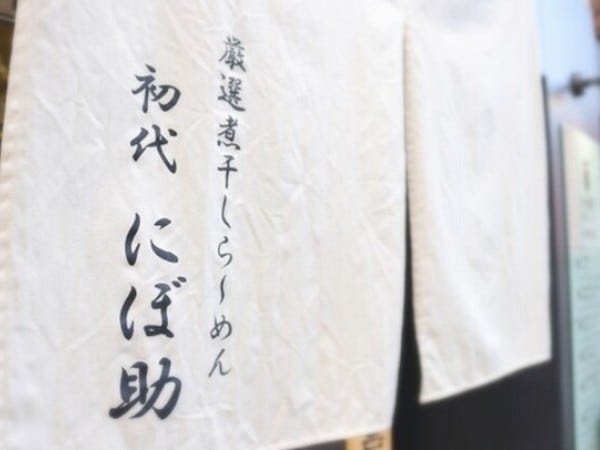 厳選煮干しらーめん
初代 にぼ助